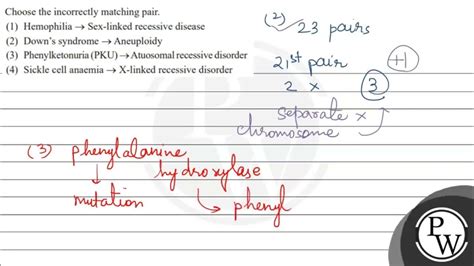 Choose the incorrectly matching pair.
(1) Hemophilia → Sex-linked recessive disease
(2) Down's syndrome → Aneuploidy
(3) Phenylketonuria (PKU) → Atuosomal recessive disorder
(4) Sickle cell anaemia → X-linked recessive disorder
(2) 23 pairs
21st pair +1
2 x 3
separate x
chromosome
(3) phenylalanine
hydroxylase
↓
mutation
phenyl
P
W
PW